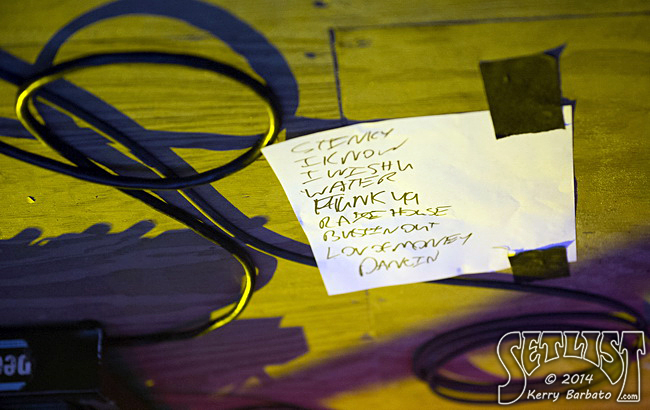 STINKY
I KNOW
I WISH U
WATER
PHUNK UP
RAISE HOUSE
BUSTIN OUT
LOVE MONEY
DANCIN
SETLIST
© 2014
Kerry Barbato .com